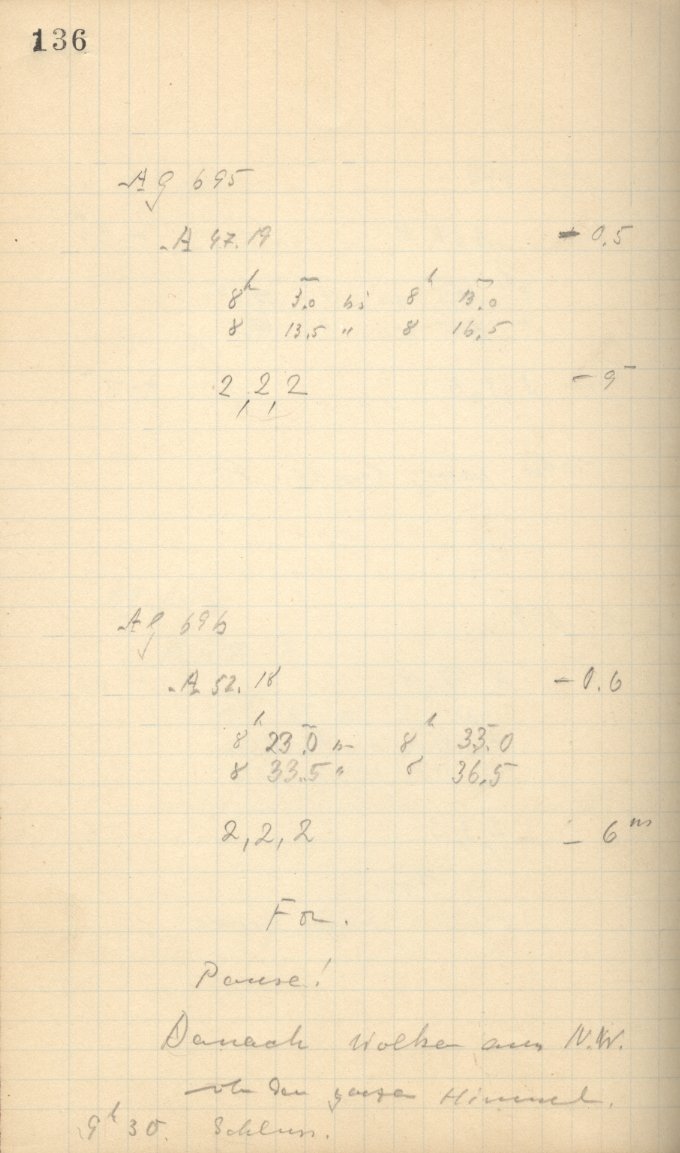 136
Ag 695
A 47.19 - 0.5
8h 3.0 bis 8h 13.0
8 13.5 " 8 16.5
2, 2, 2 - 9
Ag 696
A 52.18 - 0.6
8h 23.0 8h 33.0
8 33.5 " 8 36.5
2, 2, 2 - 6m
Pause!
Danach Wolken aus N.W.
den ganzen Himmel.
9h 30. Schluss.